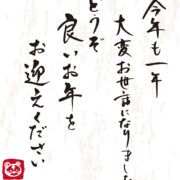 今年も一年
大変お世話になりました
どうぞ
良いお年を
お迎えください